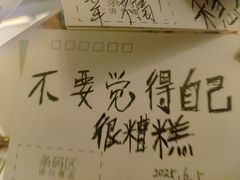 不要觉得自己
很糟糕
条码区
2025.6.5